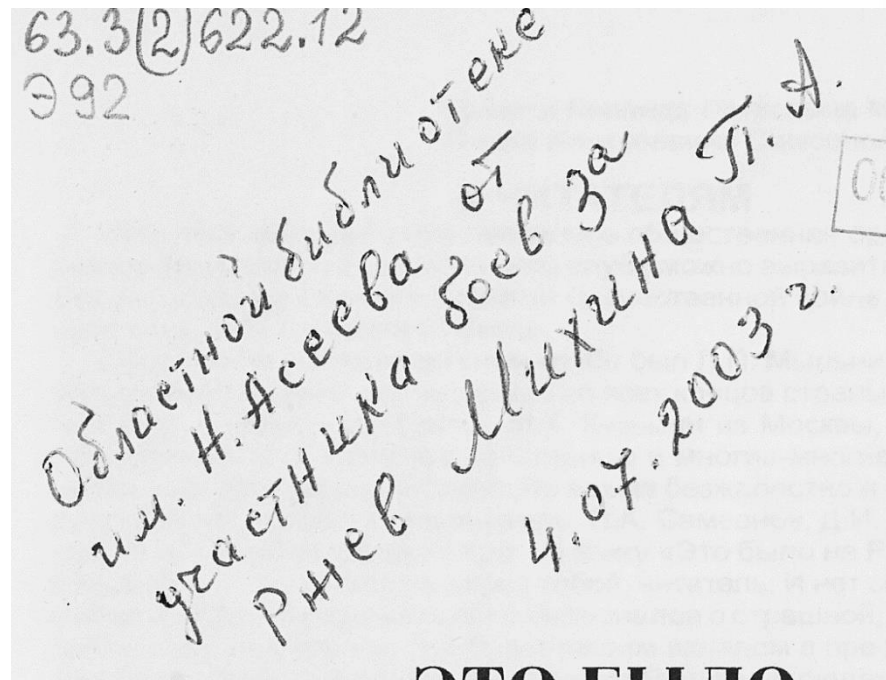 63.3(2)622.12
Э92
Областной библиотеке
им Н. Асеева от
участника боев за
Ржев Михина П. А.
4.07.2003 г.
ЭТО БЫЛО